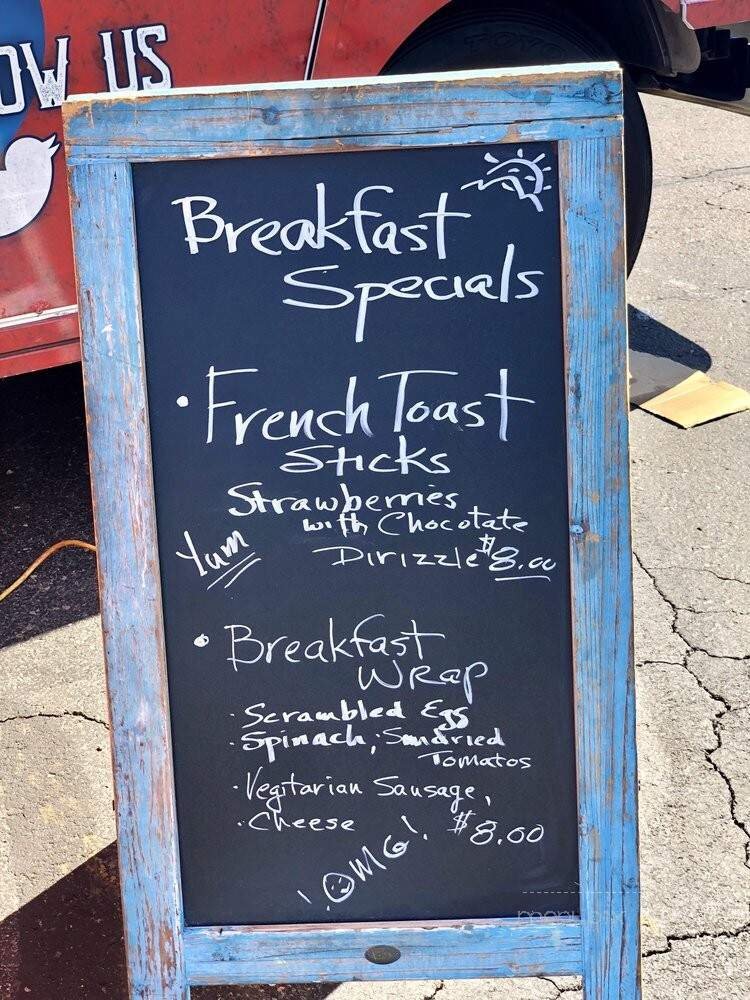 OW US
TOYO
Breakfast
Specials
• French Toast
Sticks
Strawberries
with Chocolate
Yum
Dirizzle $8.00
• Breakfast
Wrap
· Scrambled Eggs
· Spinach, Sundried
Tomatos
· Vegitarian Sausage,
· Cheese $8.00
!OMG!